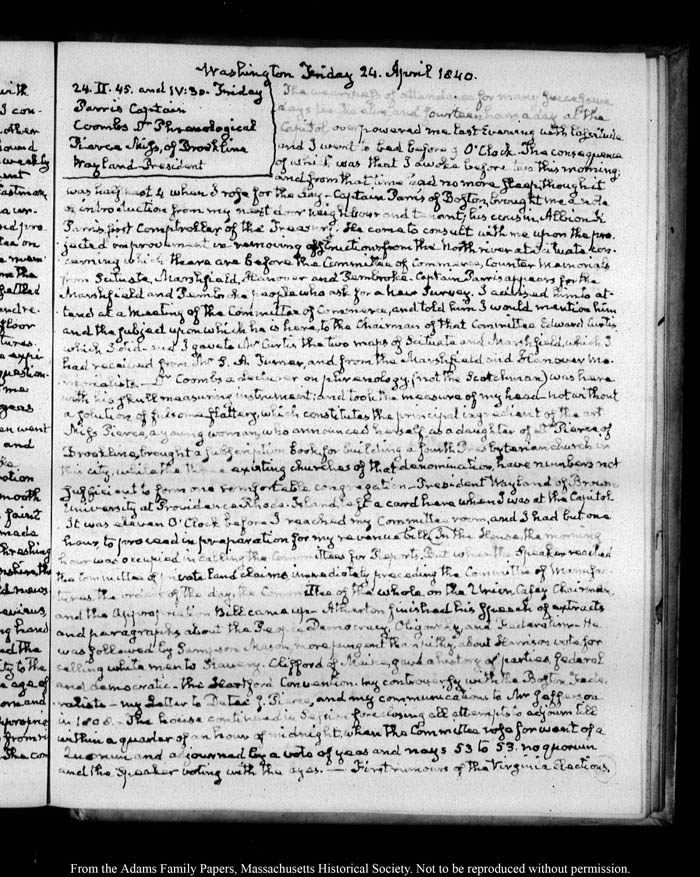 Washington Friday 24. April 1840.
24. II. 45. and IV:30. Friday
Parris Captain
Coombs Dr Phrenological
Pierce Miss, of Brookline
Wayland President
The weariness of attendance for many successive
days for twelve and fourteen hours a day at the
Capitol overpowered me last Evening with lassitude
and I went to bed before 9 O'Clock. The consequence
of which was that I awoke before two this morning
and from that time had no more sleep, though it
was half past 4 when I rose for the day. Captain Parris of Boston, brought me a note
of introduction from my next door neighbour and tenant, his cousin, Albion K
Parris, first Comptroller of the Treasury. He came to consult with me upon the pro-
jected improvement in removing obstructions from the North river at Scituate con-
cerning which there are before the Committee of Commerce, Counter Memorials
from Scituate, Marshfield, Hanover and Pembroke. Captain Parris appears for the
Marshfield and Pembroke people who ask for a new Survey. I advised him to at-
tend at a Meeting of the Committee of Commerce, and told him I would mention him
and the subject upon which he is here, to the Chairman of that Committee Edward Curtis
which I did and I gave to Mr Curtis the two maps of Scituate and Marshfield, which I
had received from Mr S. A. Turner, and from the Marshfield and Hanover me-
morialists. — Dr Coombs a lecturer on phrenology (not the Scotchman) was here
with his skull measuring instrument; and took the measure of my head not without
a solution of fulsome flattery, which constitutes the principal ingredient of the art
Miss Pierce, a young woman, who announced herself as a daughter of Dr Pierce, of
Brookline, brought a subscription book for building a fourth Presbyterian church in
this city, while the three existing churches of that denomination, have numbers not
sufficient to form one comfortable congregation. President Wayland of Brown
University at Providence Rhode-Island, left a card here when I was at the Capitol
It was eleven O'Clock before I reached my Committee room, and I had but one
hour to proceed in preparation for my revenue bill. In the House, the morning
hour was occupied in calling the Committees for Reports. But when the Speaker reached
the Committee of private land claims immediately preceding the Committee of Manufac-
tures the orders of the day, the Committee of the whole, on the Union, Casey Chairman,
and the Appropriation Bill came up. Atherton finished his speech of extracts
and paragraphs about the People Democracy, Oligarchy, and Federalism. He
was followed by Sampson Mason, more pungent than pithy, about Harrison vote for
selling white men to Slavery. Clifford of Maine, gave a history of parties federal
and democratic. the Hartford Convention. my controversy with the Boston Fede-
ralists — my Letter to Dutee J. Pearce, and my communications to Mr Jefferson
in 1808. — The house continued in Session foreclosing all attempts to adjourn till
within a quarter of an hour of midnight, when the Committee rose for want of a
Quorum and adjourned by a vote of yeas and nays 53 to 53. no quorum
and the Speaker voting with the ayes. — First rumours of the Virginia Elections.
From the Adams Family Papers, Massachusetts Historical Society. Not to be reproduced without permission.